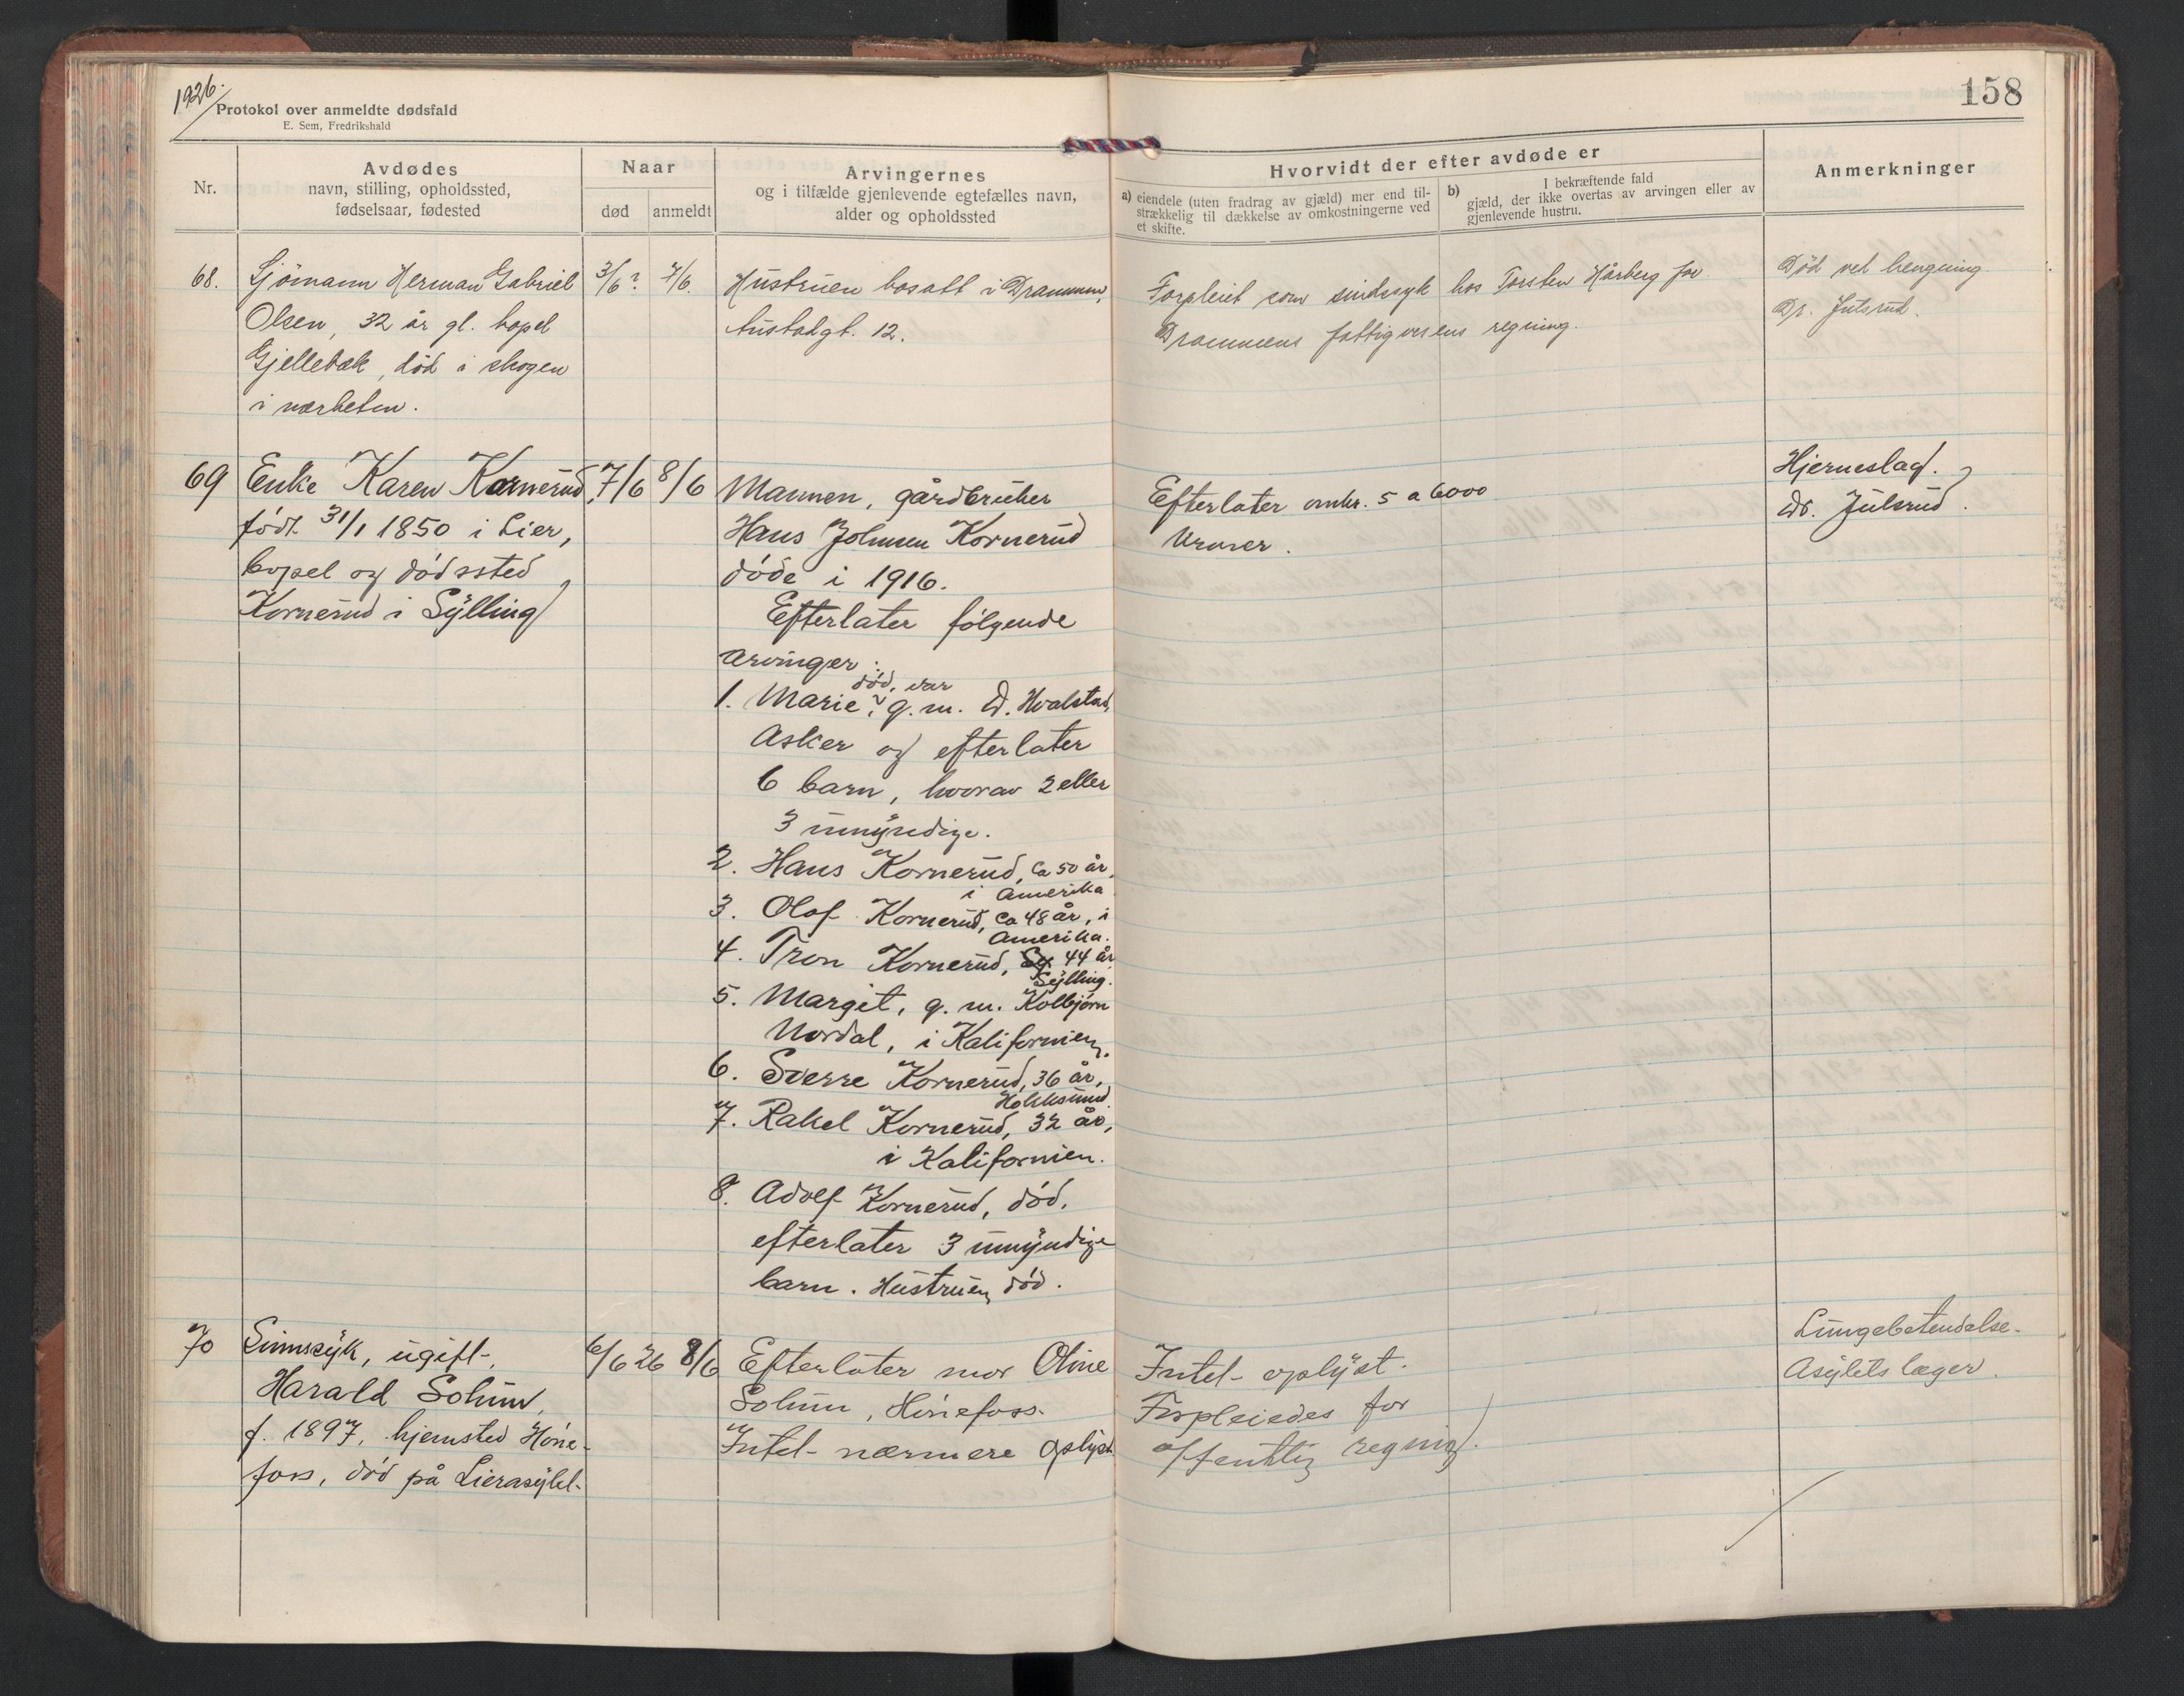 1926.
Protokol over anmeldte dødsfald
E. Sem, Fredrikshald
158
Nr.
Avdødes
navn, stilling, opholdssted,
fødselsaar, fødested
Naar
død
anmeldt
Arvingernes
og i tilfælde gjenlevende egtefælles navn,
alder og opholdssted
Hvorvidt der efter avdøde er
a) eiendele (uten fradrag av gjæld) mer end til-
strækkelig til dækkelse av omkostningerne ved
et skifte.
b) I bekræftende fald
gjæld, der ikke overtas av arvingen eller av
gjenlevende hustru.
Anmerkninger
68.
Sjömann Herman Gabriel
Olsen, 32 år gl. bopel
Gjellebæk, död i skogen
i nærheten.
3/6?
7/6.
Hustruen bosatt i Drammen,
gt. 12.
Forpleiet som sindssyk hos Torsten Hårberg for
Drammens fattigvesens regning.
Död ved hengning
Dr. Julsrud.
69
Enke Karen Kornerud,
født 31/1 1850 i Lier,
bopel og dödssted
Kornerud i Sylling
7/6
8/6
Mannen, gårdbruker
Hans Johnsen Kornerud
döde i 1916.
Efterlater fölgende
arvinger:
1. Marie, död, var g. m. D. Hvalstad,
Asker og efterlater
6 barn, hvorav 2 eller
3 umyndige.
2. Hans Kornerud, ca 50 år,
i Amerika
3. Olaf Kornerud, ca 48 år, i
Amerika.
4. Tron Kornerud, Sy 44 år
Sylling.
5. Margit, g. m. Kolbjörn
Nordal, i Kalifornien.
6. Sverre Kornerud, 36 år,
Hokksund.
7. Rakel Kornerud, 32 år,
i Kalifornien.
8. Adolf Kornerud, död,
efterlater 3 umyndige
barn. Hustruen död.
Efterlater omkr. 5 a 6000
kroner.
Hjerneslag.
Dr. Julsrud.
70
Sinnsyk, ugift,
Harald Solum,
f. 1897, hjemsted Höne-
foss, död på Lierasylet.
6/6 26
8/6
Efterlater mor Oline
Solum, Hönefoss.
Intet nærmere oplyst
Intet oplyst.
Forpleiedes for
offentlig regning.
Lungebetendelse.
Asylets læger.